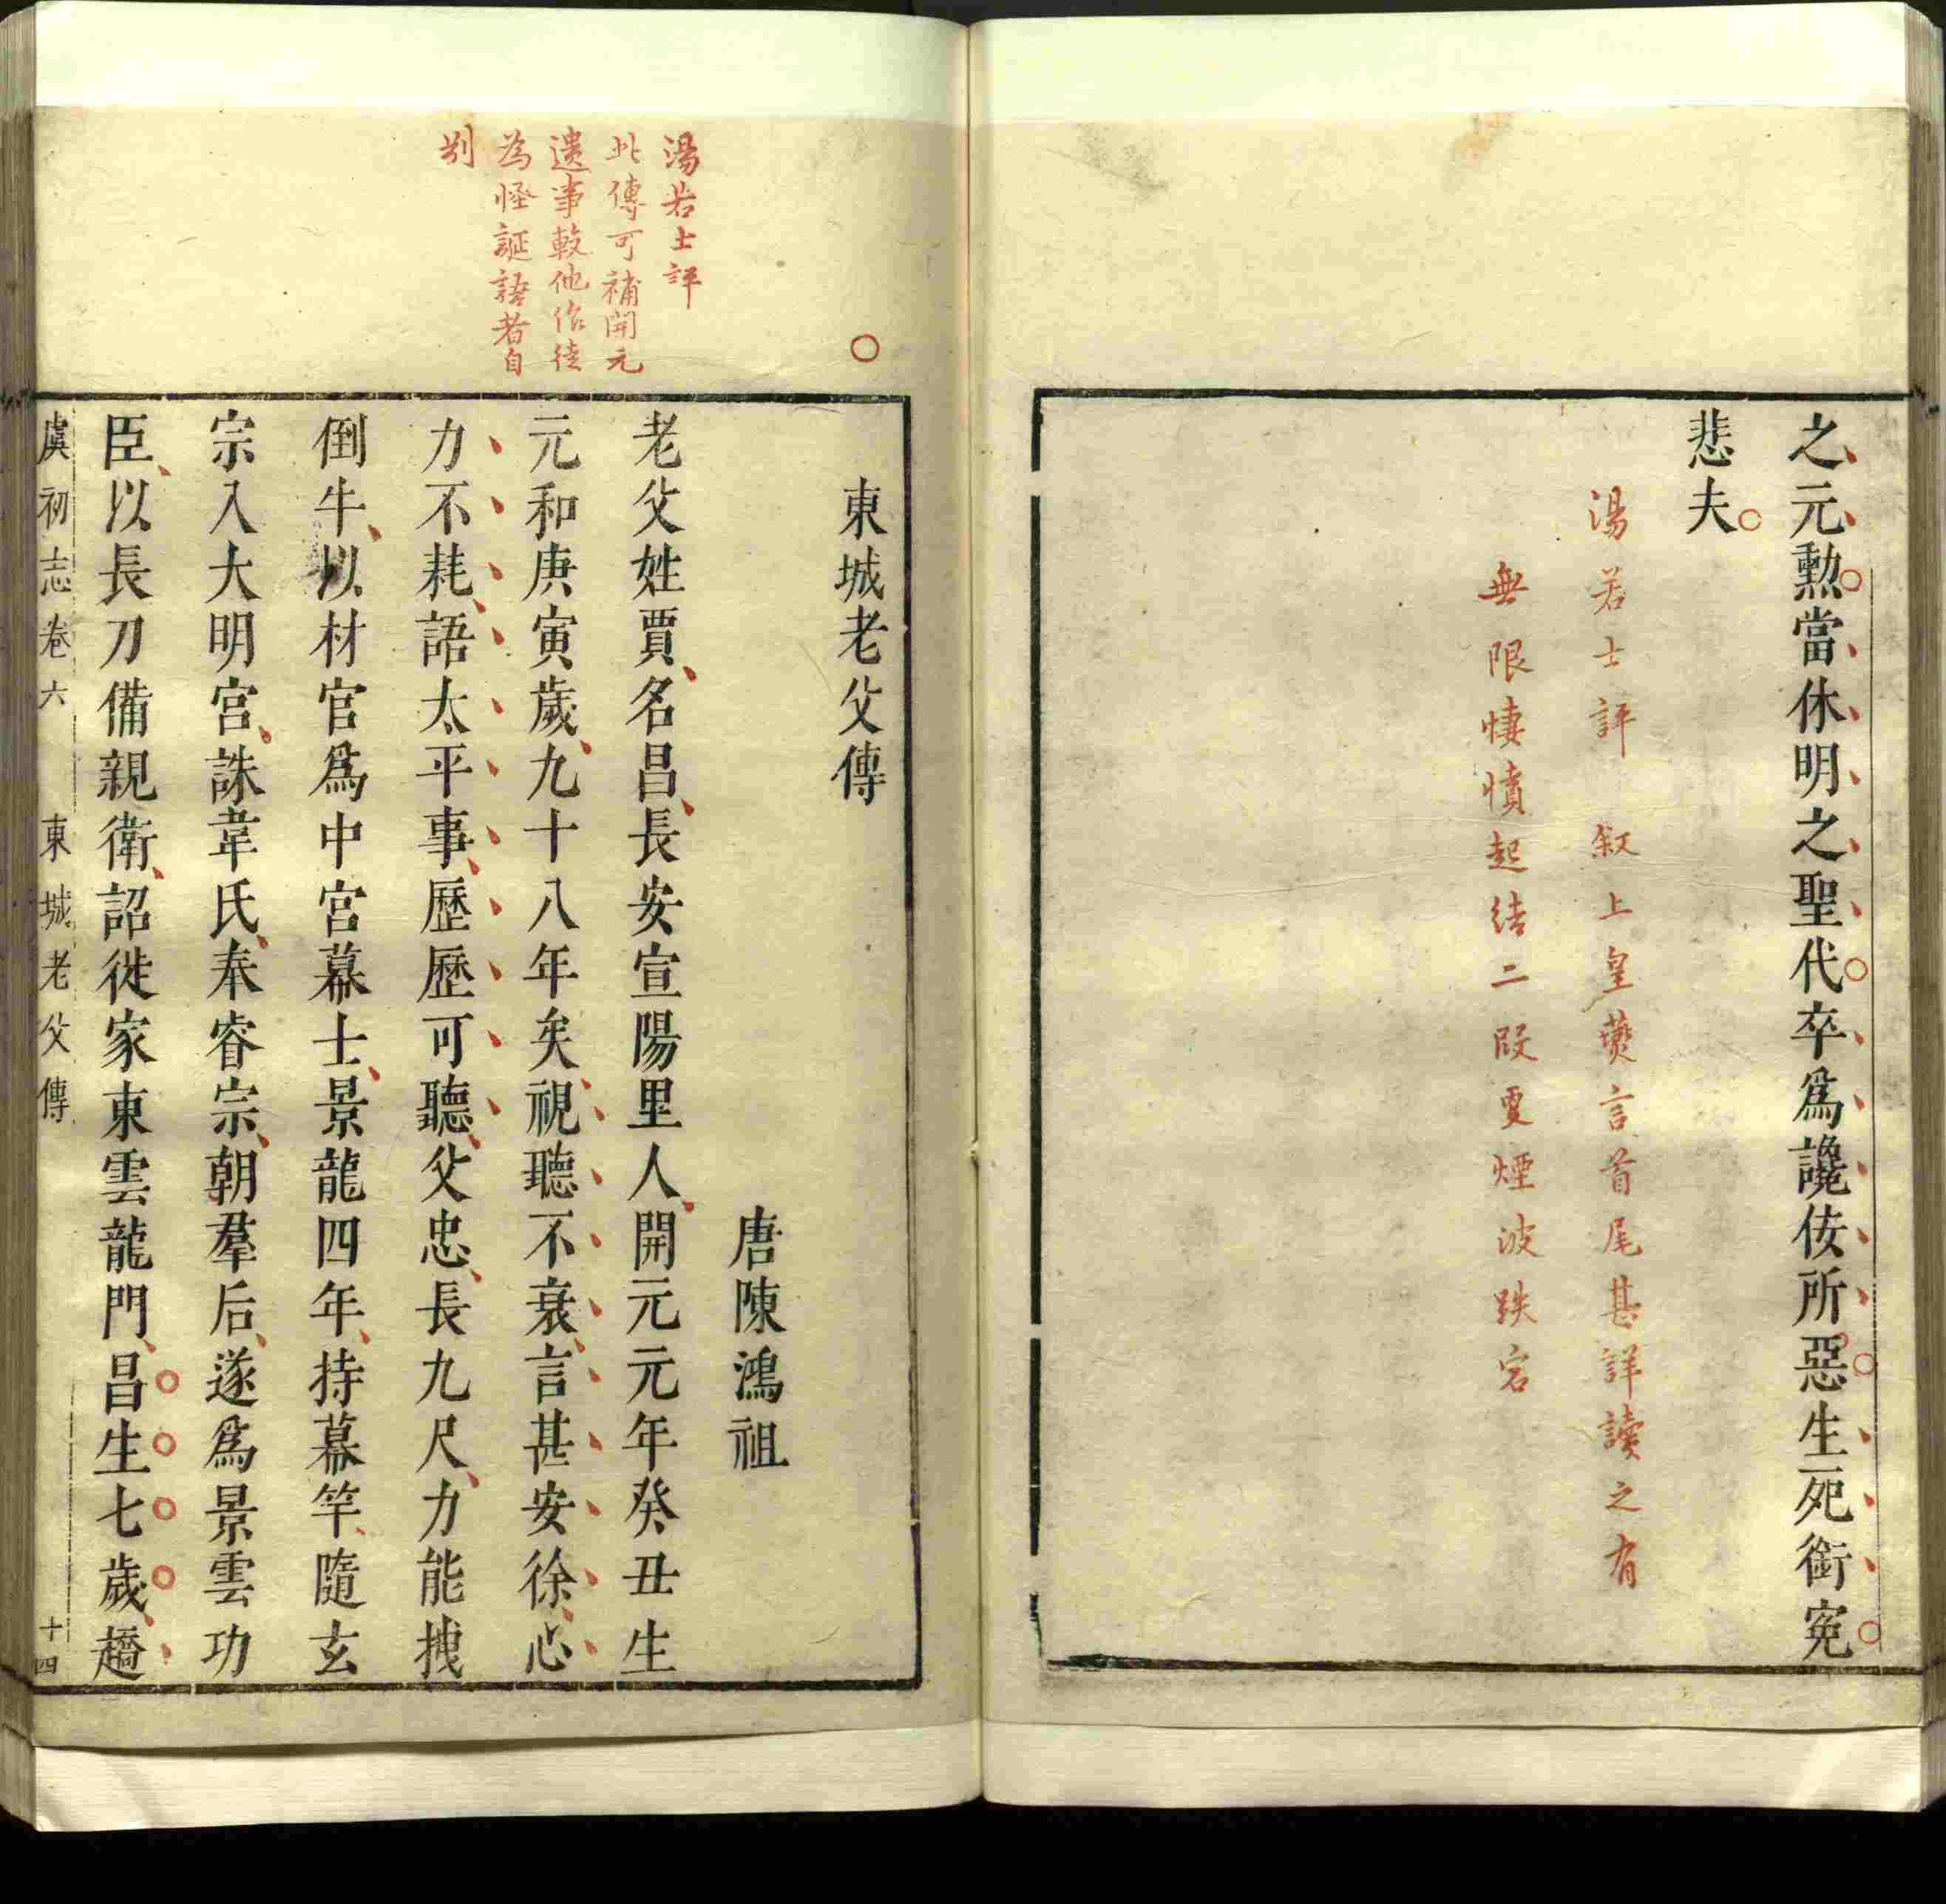 之元勲當休明之聖代卒爲讒佞所惡生死銜寃
悲夫
湯若士評　叙上皇燕言首尾甚詳讀之有
無限悽憤起結二段更煙波跌宕
湯若士評
此傳可補開元
遺事較他作徒
為怪誕語者自
別
東城老父傳
唐陳鴻祖
老父姓賈名昌長安宣陽里人開元元年癸丑生
元和庚寅歲九十八年矣視聽不衰言甚安徐心
力不耗語太平事歷歷可聽父忠長九尺力能拽
倒牛以材官爲中宮幕士景龍四年持幕竿隨玄
宗入大明宮誅韋氏奉睿宗朝羣后遂爲景雲功
臣以長刀備親衛詔徙家東雲龍門昌生七歲趫
虞初志卷六　東城老父傳　十四